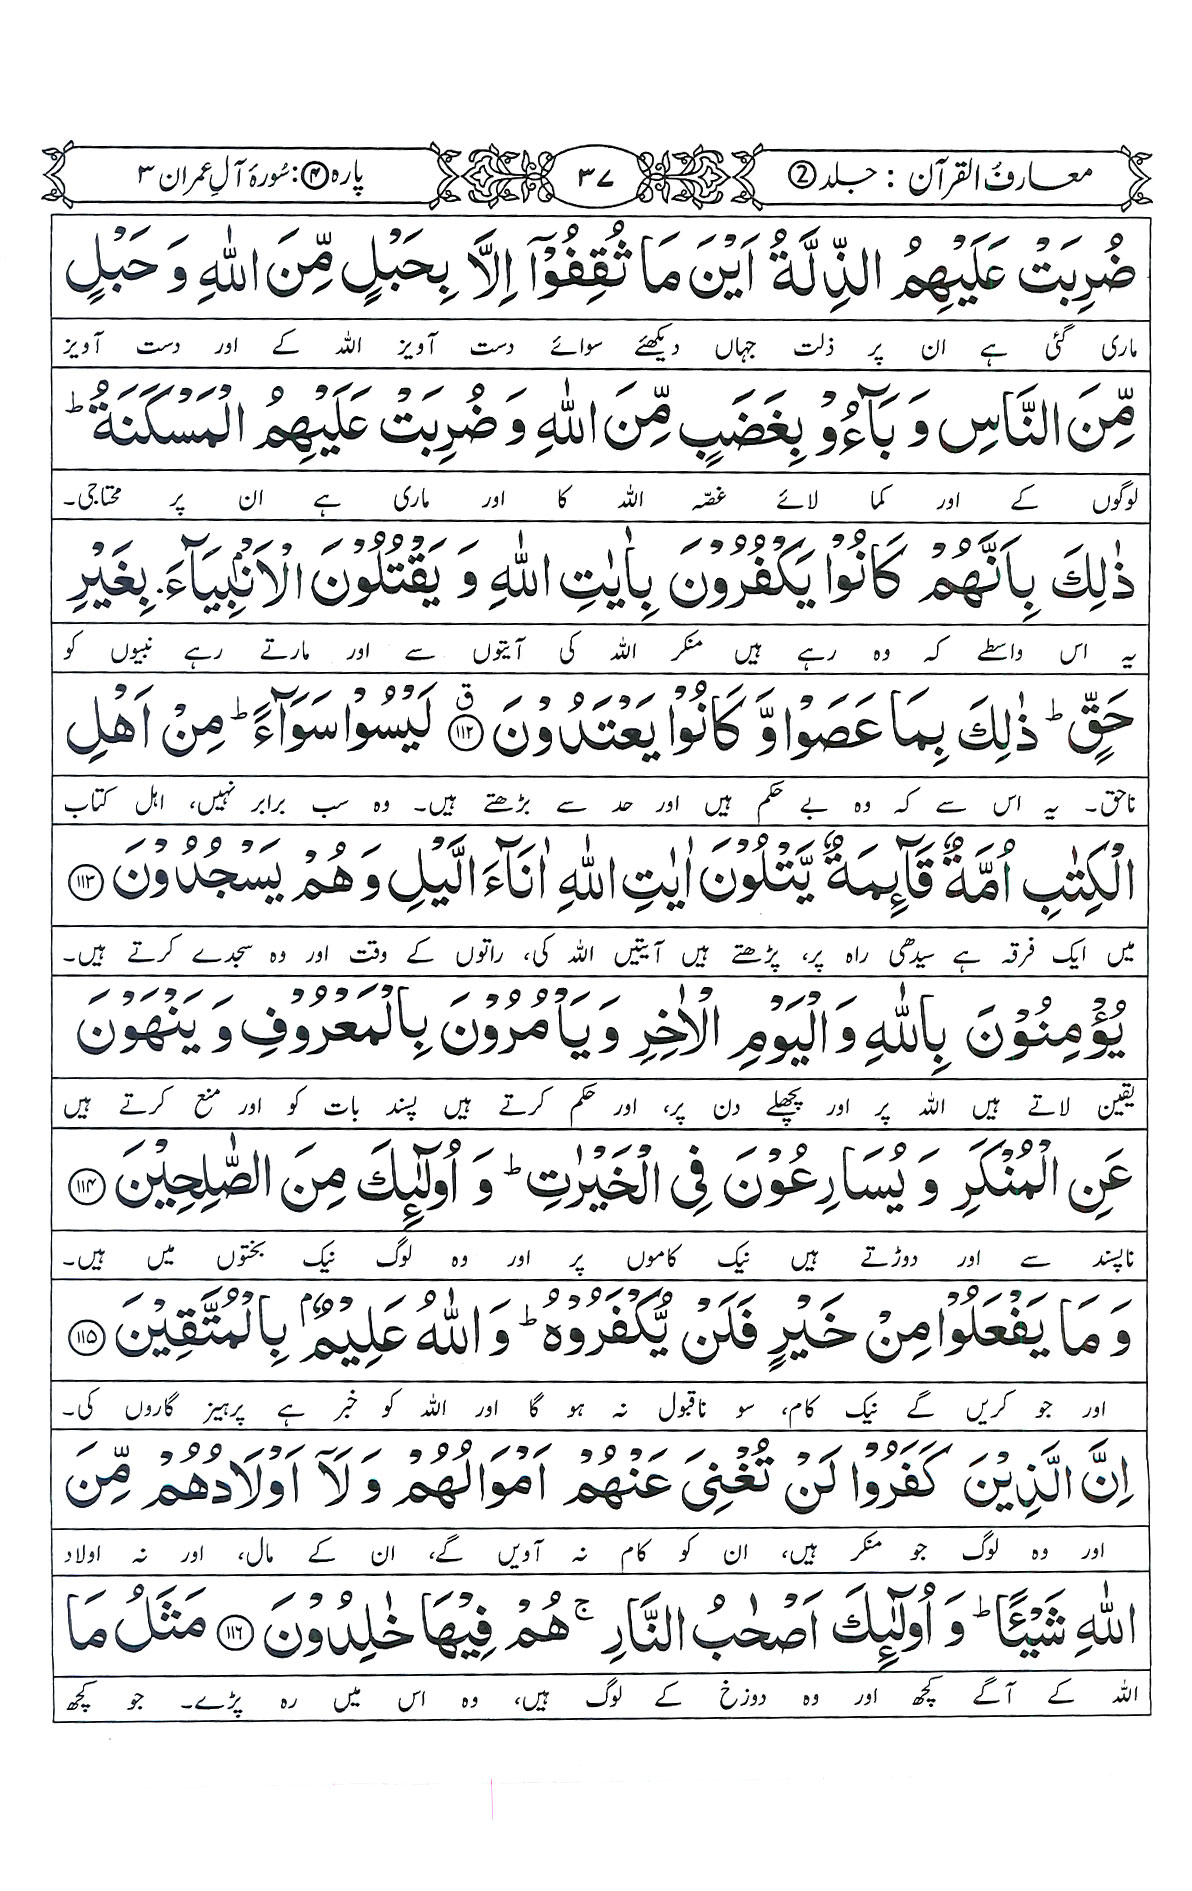 معارفُ القرآن : جلد ②
۳۷
پارہ ④ : سُورۂ آلِ عمران ۳
ضُرِبَتْ عَلَيْهِمُ الذِّلَّةُ اَيْنَ مَا ثُقِفُوْٓا اِلَّا بِحَبْلٍ مِّنَ اللّٰهِ وَ حَبْلٍ
ماری گئی ہے ان پر ذلت جہاں دیکھئے سوائے دست آویز اللہ کے اور دست آویز
مِّنَ النَّاسِ وَ بَآءُوْ بِغَضَبٍ مِّنَ اللّٰهِ وَ ضُرِبَتْ عَلَيْهِمُ الْمَسْكَنَةُ ؕ
لوگوں کے اور کما لائے غصّہ اللہ کا اور ماری ہے ان پر محتاجی۔
ذٰلِكَ بِاَنَّهُمْ كَانُوْا يَكْفُرُوْنَ بِاٰيٰتِ اللّٰهِ وَ يَقْتُلُوْنَ الْاَنْۢبِيَآءَ بِغَيْرِ
یہ اس واسطے کہ وہ رہے ہیں منکر اللہ کی آیتوں سے اور مارتے رہے نبیوں کو
حَقٍّ ؕ ذٰلِكَ بِمَا عَصَوْا وَّ كَانُوْا يَعْتَدُوْنَ ۙق ﴿۱۱۲﴾ لَيْسُوْا سَوَآءً ؕ مِنْ اَهْلِ
ناحق۔ یہ اس سے کہ وہ بے حکم ہیں اور حد سے بڑھتے ہیں۔ وہ سب برابر نہیں، اہل کتاب
الْكِتٰبِ اُمَّةٌ قَآئِمَةٌ يَّتْلُوْنَ اٰيٰتِ اللّٰهِ اٰنَآءَ الَّيْلِ وَ هُمْ يَسْجُدُوْنَ ﴿۱۱۳﴾
میں ایک فرقہ ہے سیدھی راہ پر، پڑھتے ہیں آیتیں اللہ کی، راتوں کے وقت اور وہ سجدے کرتے ہیں۔
يُؤْمِنُوْنَ بِاللّٰهِ وَ الْيَوْمِ الْاٰخِرِ وَ يَاْمُرُوْنَ بِالْمَعْرُوْفِ وَ يَنْهَوْنَ
یقین لاتے ہیں اللہ پر اور پچھلے دن پر، اور حکم کرتے ہیں پسند بات کو اور منع کرتے ہیں
عَنِ الْمُنْكَرِ وَ يُسَارِعُوْنَ فِی الْخَيْرٰتِ ؕ وَ اُولٰٓئِكَ مِنَ الصّٰلِحِيْنَ ﴿۱۱۴﴾
ناپسند سے اور دوڑتے ہیں نیک کاموں پر اور وہ لوگ نیک بختوں میں ہیں۔
وَ مَا يَفْعَلُوْا مِنْ خَيْرٍ فَلَنْ يُّكْفَرُوْهُ ؕ وَ اللّٰهُ عَلِيْمٌۢ بِالْمُتَّقِيْنَ ﴿۱۱۵﴾
اور جو کریں گے نیک کام، سو ناقبول نہ ہو گا اور اللہ کو خبر ہے پرہیز گاروں کی۔
اِنَّ الَّذِيْنَ كَفَرُوْا لَنْ تُغْنِیَ عَنْهُمْ اَمْوَالُهُمْ وَ لَآ اَوْلَادُهُمْ مِّنَ
اور وہ لوگ جو منکر ہیں، ان کو کام نہ آویں گے، ان کے مال، اور نہ اولاد
اللّٰهِ شَيْئًا ؕ وَ اُولٰٓئِكَ اَصْحٰبُ النَّارِ ۚ هُمْ فِيْهَا خٰلِدُوْنَ ﴿۱۱۶﴾ مَثَلُ مَا
اللہ کے آگے کچھ اور وہ دوزخ کے لوگ ہیں، وہ اس میں رہ پڑے۔ جو کچھ